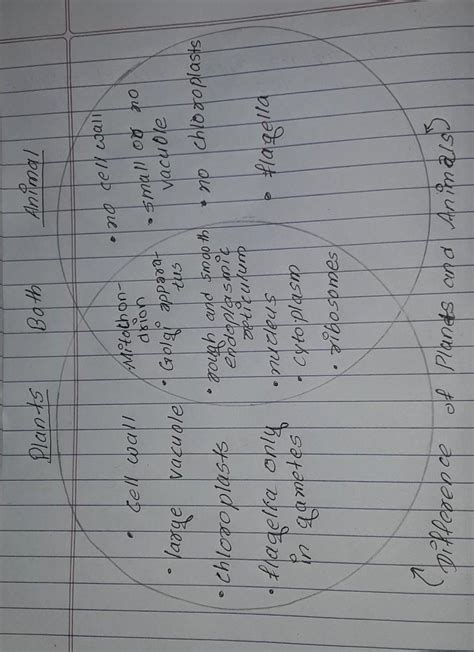 Plants Both Animal
• cell wall
• large vacuole
• chloroplasts
• flagella only
in gametes
Mitochon-
drion
• Golgi apparat
tus
• rough and smooth
endoplasmic
reticulum
• nucleus
• cytoplasm
• ribosomes
• no cell wall
• small or no
vacuole
• no chloroplasts
• flagella
(Difference of Plants and Animals)